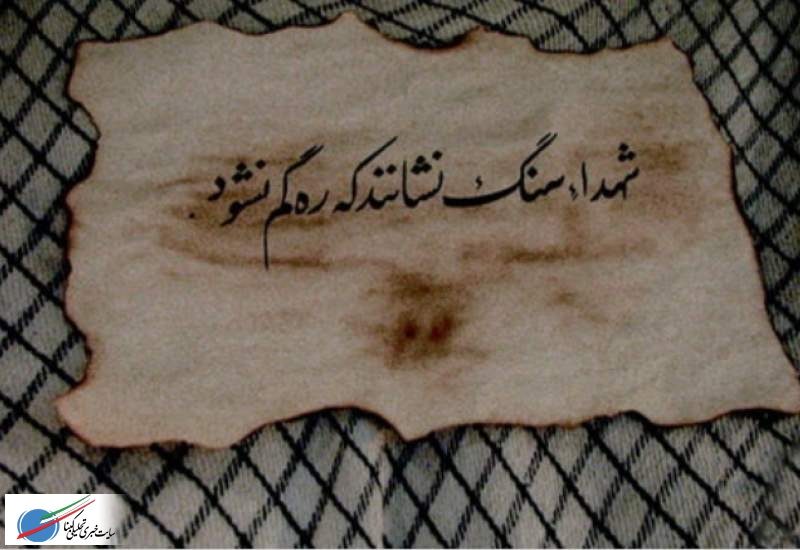 شهداء سنگ نشانند که ره گم نشود.
سایت خبری تحلیلی کبنا